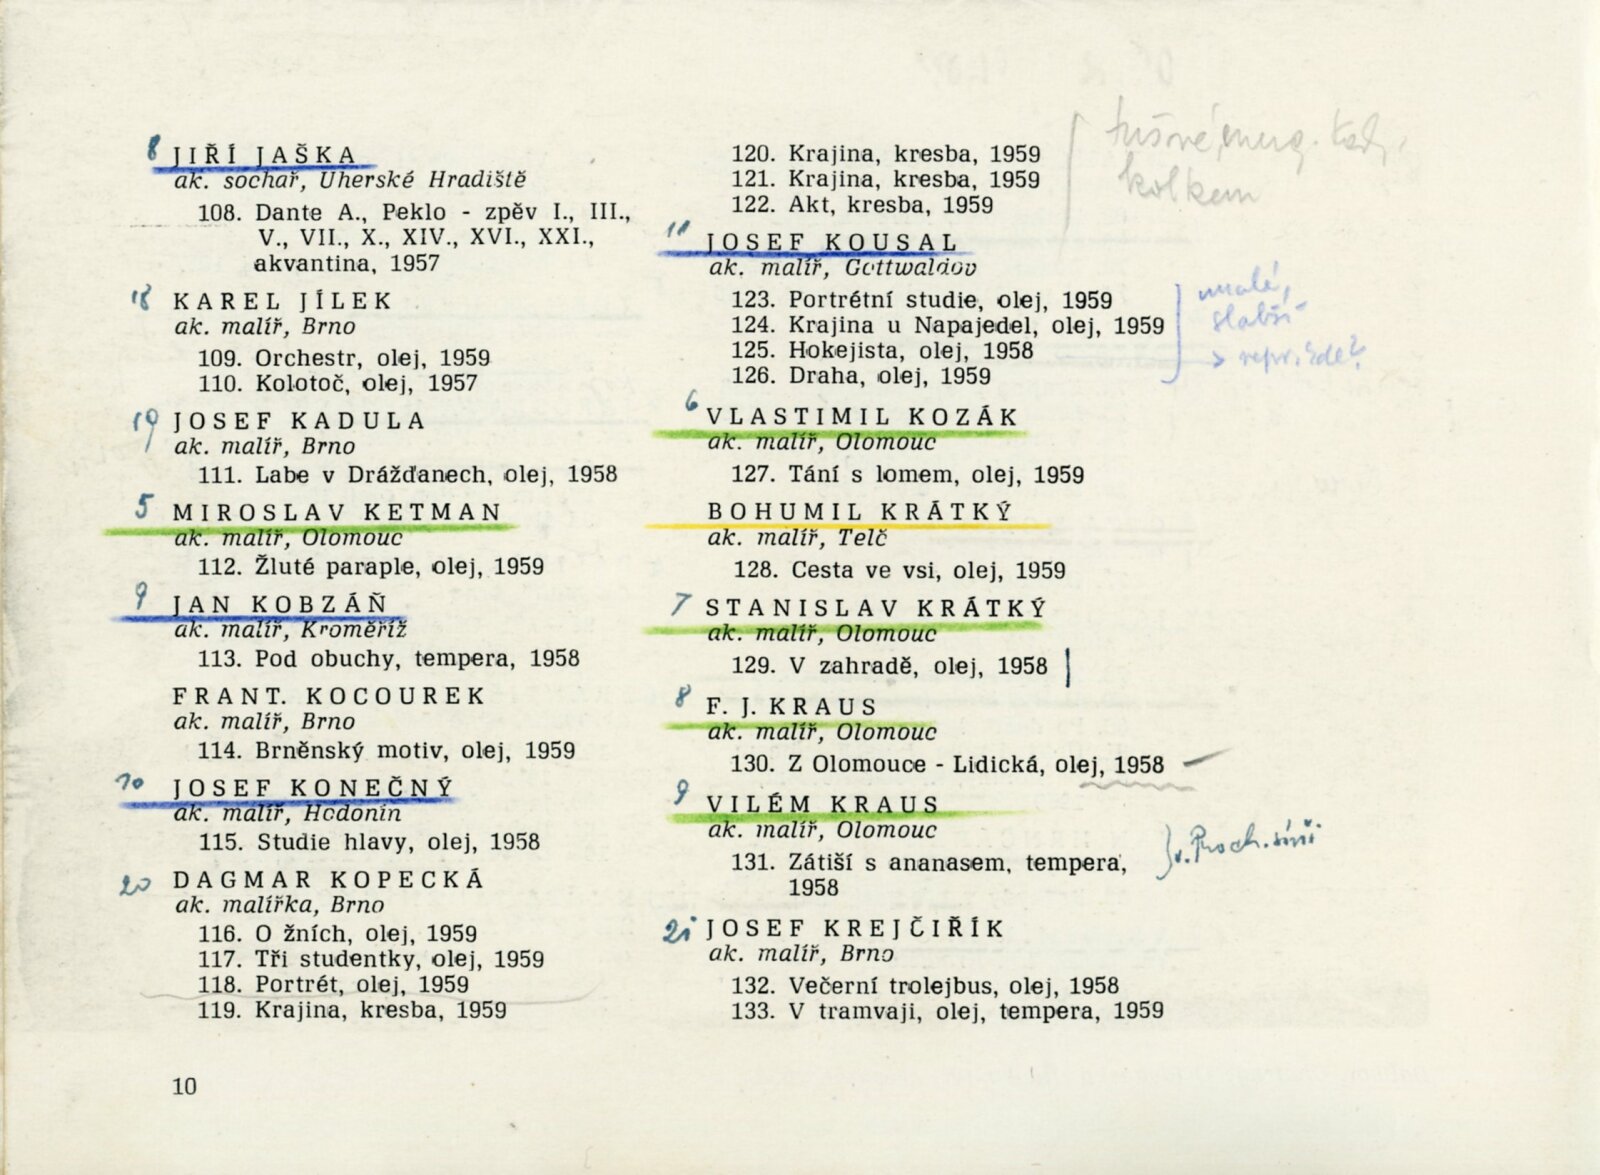 8 JIŘÍ JAŠKA
ak. sochař, Uherské Hradiště
108. Dante A., Peklo - zpěv I., III.,
V., VII., X., XIV., XVI., XXI.,
akvantina, 1957
18 KAREL JÍLEK
ak. malíř, Brno
109. Orchestr, olej, 1959
110. Kolotoč, olej, 1957
19 JOSEF KADULA
ak. malíř, Brno
111. Labe v Drážďanech, olej, 1958
5 MIROSLAV KETMAN
ak. malíř, Olomouc
112. Žluté paraple, olej, 1959
9 JAN KOBZÁŇ
ak. malíř, Kroměříž
113. Pod obuchy, tempera, 1958
FRANT. KOCOUREK
ak. malíř, Brno
114. Brněnský motiv, olej, 1959
10 JOSEF KONEČNÝ
ak. malíř, Hodonín
115. Studie hlavy, olej, 1958
20 DAGMAR KOPECKÁ
ak. malířka, Brno
116. O žních, olej, 1959
117. Tři studentky, olej, 1959
118. Portrét, olej, 1959
119. Krajina, kresba, 1959
10
120. Krajina, kresba, 1959
121. Krajina, kresba, 1959
122. Akt, kresba, 1959
kolkem
11 JOSEF KOUSAL
ak. malíř, Gottwaldov
123. Portrétní studie, olej, 1959
124. Krajina u Napajedel, olej, 1959
125. Hokejista, olej, 1958
126. Draha, olej, 1959
malé,
slabší
6 VLASTIMIL KOZÁK
ak. malíř, Olomouc
127. Tání s lomem, olej, 1959
BOHUMIL KRÁTKÝ
ak. malíř, Telč
128. Cesta ve vsi, olej, 1959
7 STANISLAV KRÁTKÝ
ak. malíř, Olomouc
129. V zahradě, olej, 1958
8 F. J. KRAUS
ak. malíř, Olomouc
130. Z Olomouce - Lidická, olej, 1958
9 VILÉM KRAUS
ak. malíř, Olomouc
131. Zátiší s ananasem, tempera,
1958
v. Proch. síni
21 JOSEF KREJČIŘÍK
ak. malíř, Brno
132. Večerní trolejbus, olej, 1958
133. V tramvaji, olej, tempera, 1959